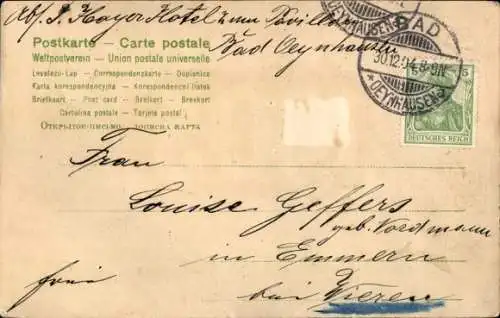 Abs. J. Hoyer Hotel zum Pavillon
Bad Oeynhausen
Postkarte – Carte postale
Weltpostverein – Union postale universelle
Levelezö-Lap – Correspondenzkarte – Dopisnice
Karta korespondencyjna – Korespondencni listek
Briefkaart – Post card – Brefkort – Brevkort
Cartolina postale – Tarjeta postal
Открытое письмо
BAD
OEYNHAUSEN
30.12.04.8-9N
* OEYNHAUSEN
5
DEUTSCHES REICH
Frau
Louise Geffers
geb. Nordmann
in Emmern
frei
bei